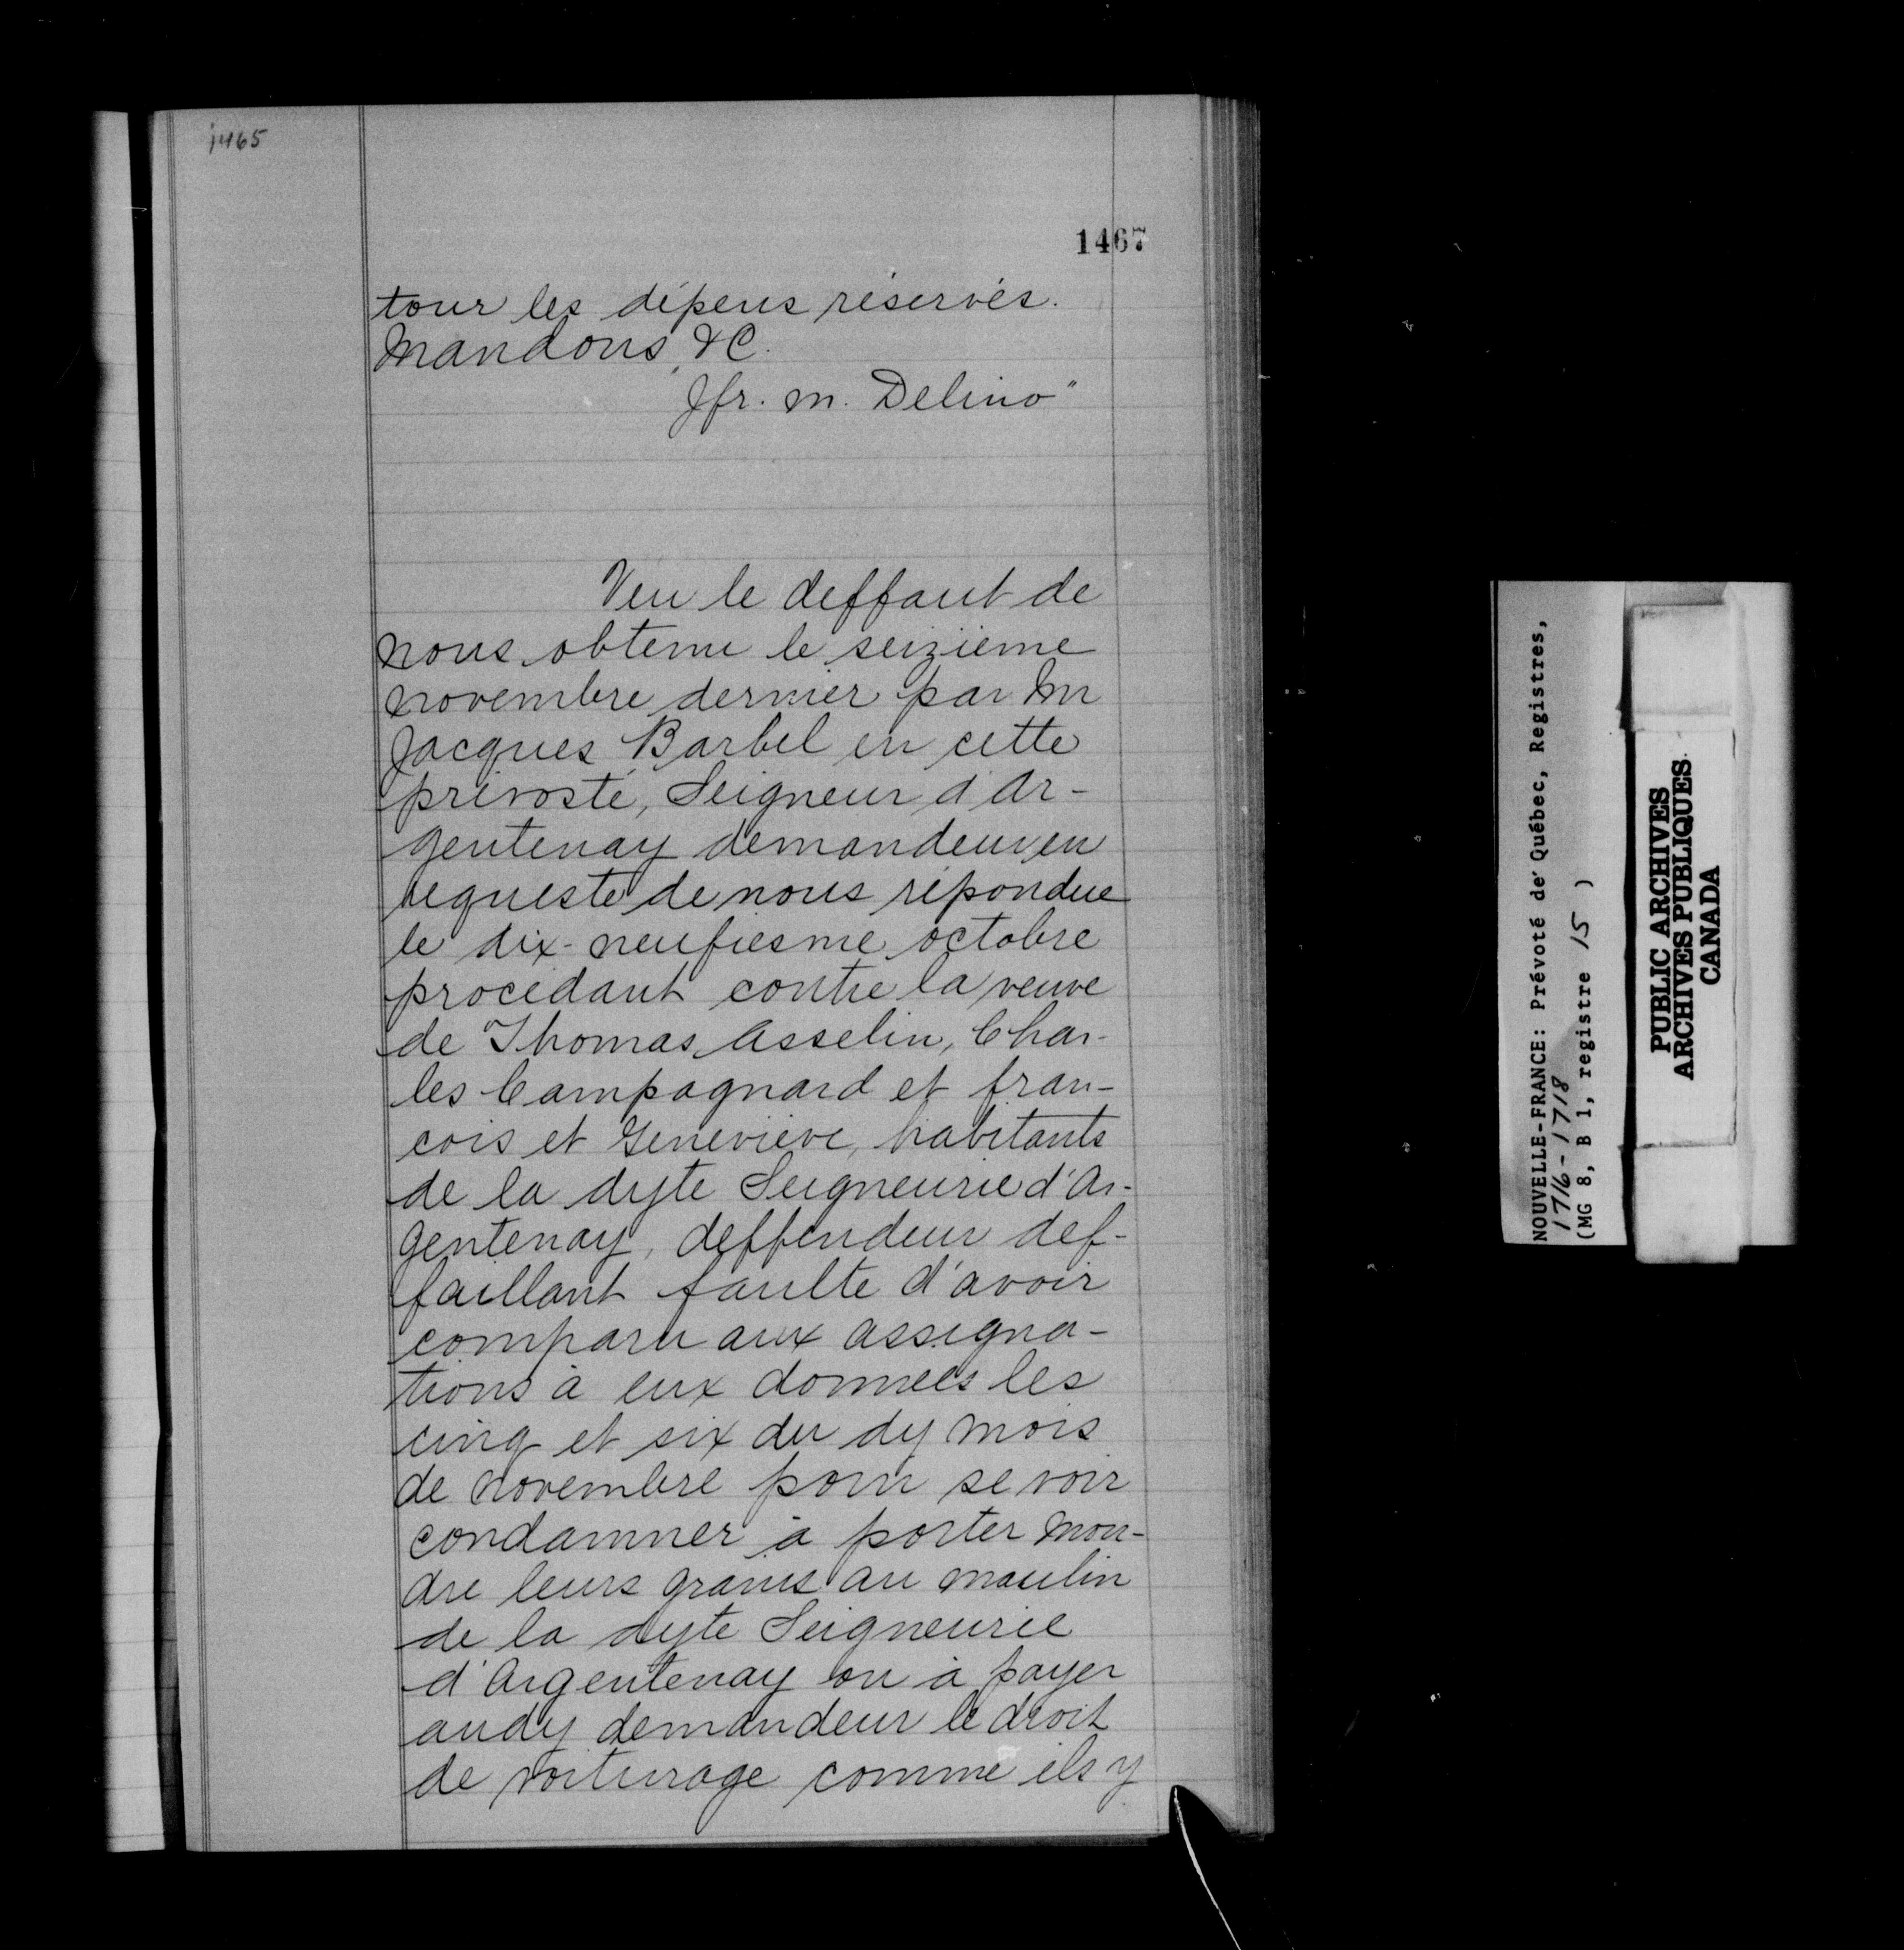 1465
1467
tour les dépens réservés.
Mandons, &C.
"Jfr. m. Delino"
Veu le deffaut de
nous obtenu le seizième
novembre dernier par Mr
Jacques Barbel en cette
prévosté, Seigneur d'Ar-
gentenay demandeur en
requeste de nous répondue
le dix-neufiesme octobre
procédant contre la veuve
de Thomas Asselin, Char-
les Campagnard et fran-
cois et Geneviève, habitants
de la dyte Seigneurie d'Ar-
gentenay, deffendeur def-
faillant faulte d'avoir
comparu aux assigna-
tions à eux données les
cinq et six du dy mois
de novembre pour se voir
condamner à porter mou-
dre leurs grains au moulin
de la dyte Seigneurie
d'Argentenay ou à payer
audy demandeur le droit
de voiturage comme ils y
NOUVELLE-FRANCE: Prévoté de Québec, Registres,
1716-1718
(MG 8, B 1, registre 15 )
PUBLIC ARCHIVES
ARCHIVES PUBLIQUES
CANADA